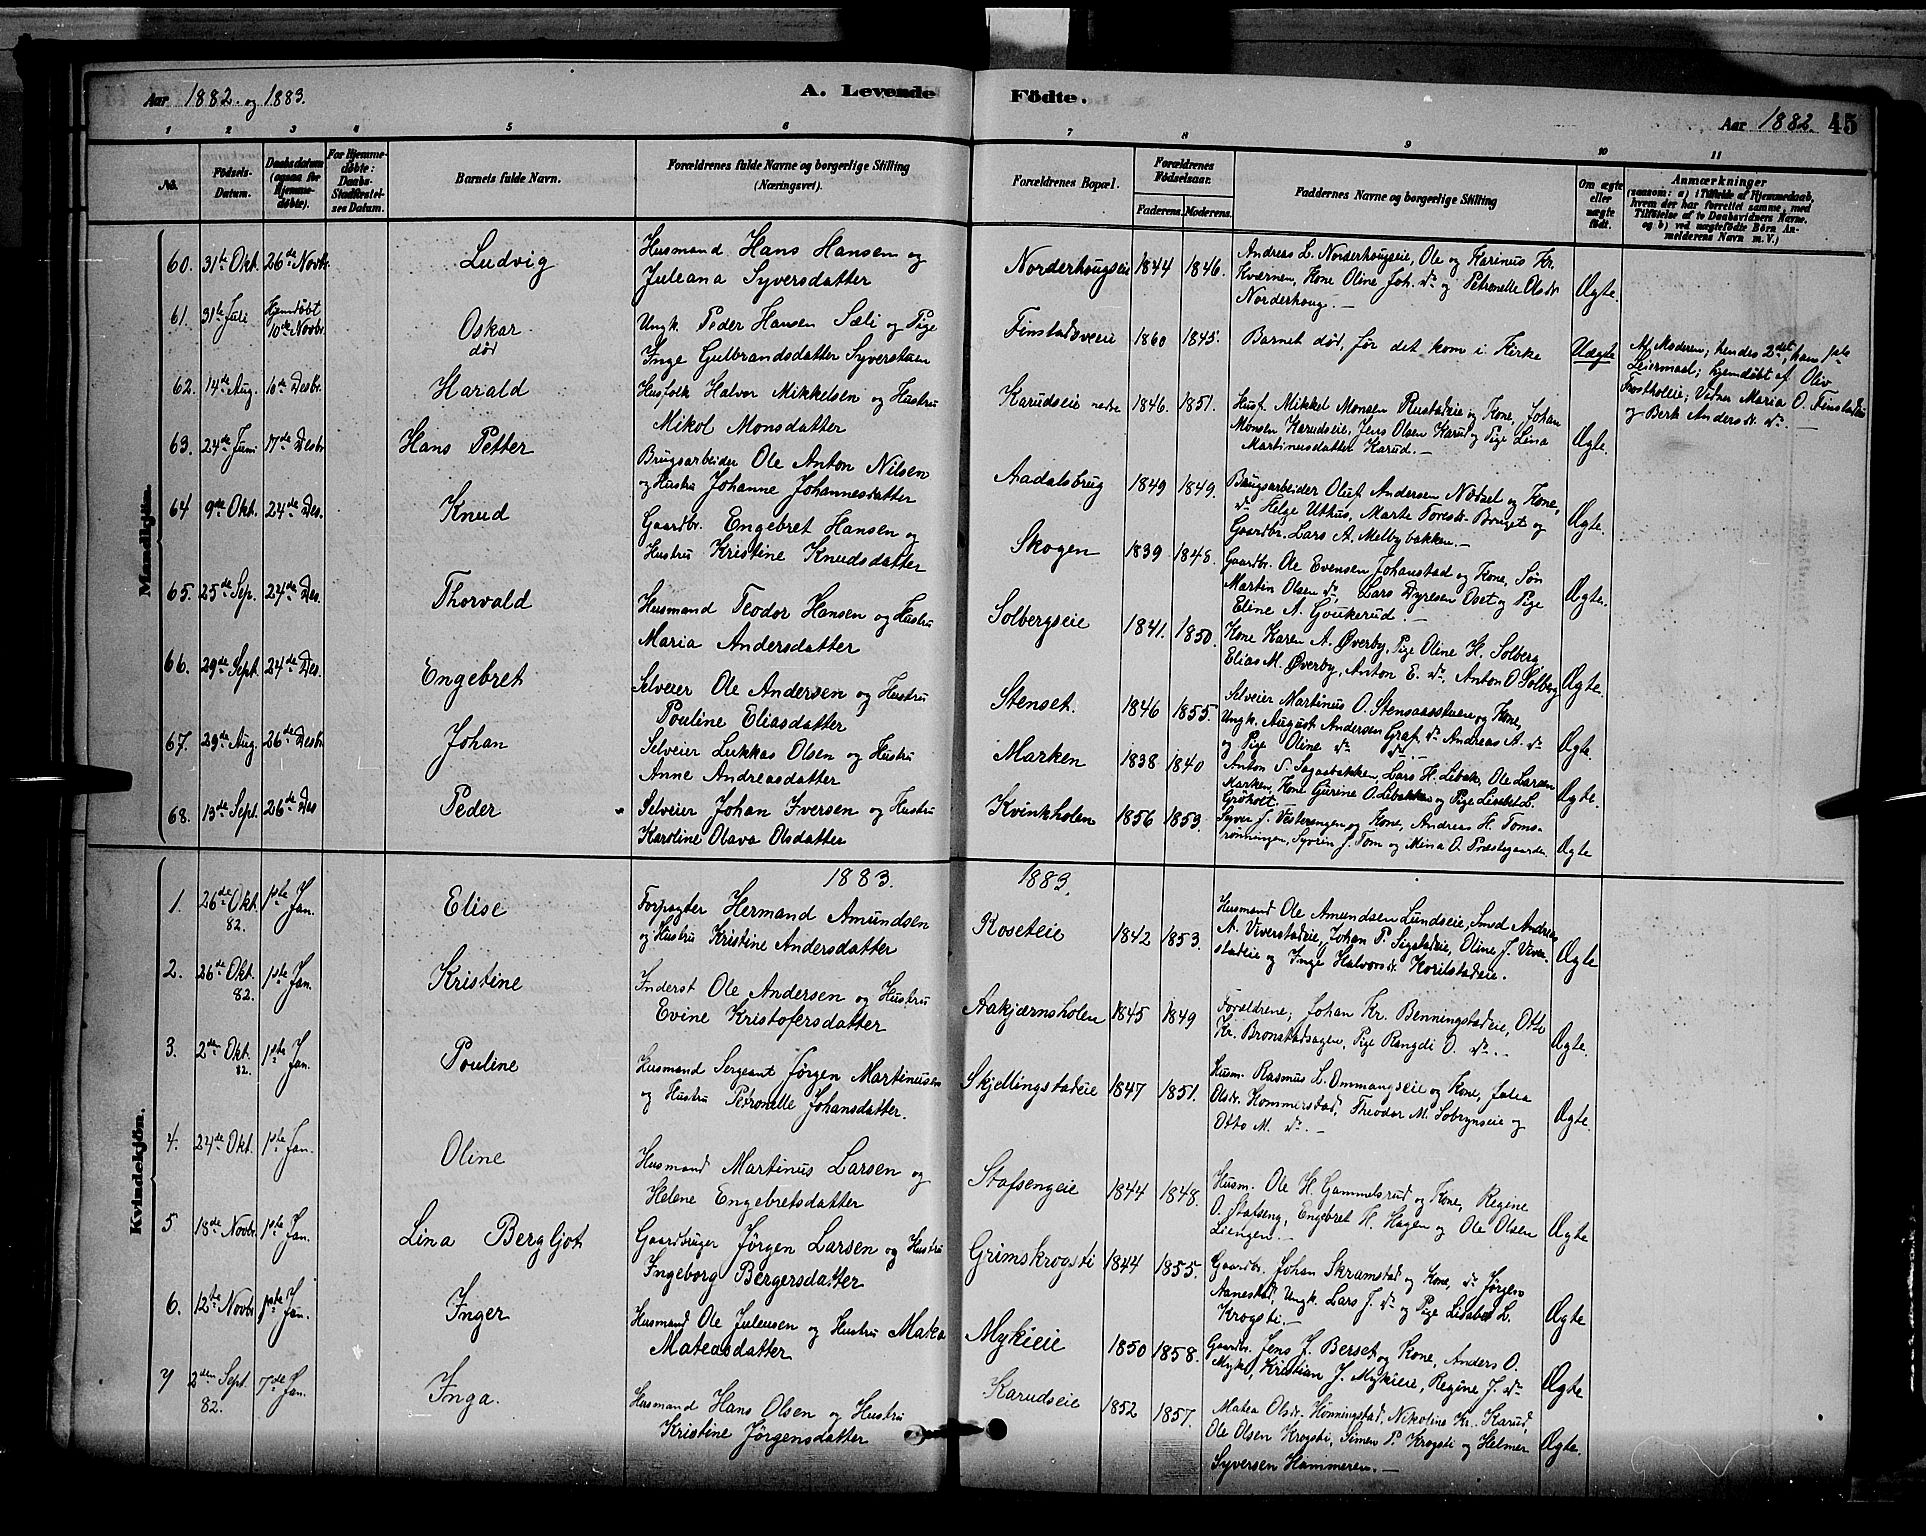 Aar 1882. og 1883.
A. Levende Födte.
Aar 1882. 45
1 2 3 4 5 6 7 8 9 10 11
No.
Födsels-Datum.
Daabsdatum (ogsaa for Hjemme-döbte).
For Hjemme-döbte: Daabs-Stadfæstel-ses Datum.
Barnets fulde Navn.
Forældrenes fulde Navne og borgerlige Stilling (Næringsvei).
Forældrenes Bopæl.
Forældrenes Födselsaar.
Faderens. Moderens.
Faddernes Navne og borgerlige Stilling
Om ægte eller uægte födt.
Anmærkninger
(saasom: a) i Tilfælde af Hjemmedaab, hvem der har forrettet samme, med Tilföielse af to Daabsvidners Navne, og b) ved uægtefödte Börn Anmelderens Navn m. V.)
Mandkjön.
60. 31te Okt. 26de Novbr. Ludvig
Husmand Hans Hansen og
Juleana Syversdatter
Norderhougseie 1844 1846.
Andreas L. Norderhougseie, Ole og Karinus Kr.
Kværnen, Kone Oline Joh. dr. og Petronelle Olsdr
Norderhoug. —
Ægte.
61. 31te Juli Hjemdöbt 10de Novbr. Oskar
död
Ungk. Peder Hansen Sæli og Pige
Inge Gulbrandsdatter Syverstuen
Finstadsveie 1860 1845.
Barnet død, før det kom i Kirke
Uægte
Af Moderen; hendes 2det, hans 1ste
Leiermaal; hjemdöbt af Oliv
Frostholeie; Vidner Maria O. Finstadeie
og Berk Andersdr. do. —
62. 14de Aug. 10de Desbr. Harald
Husfolk Halvor Mikkelsen og Hustru
Mikol Monsdatter
Karudseie nedre 1846. 1851.
Husf. Mikkel Monsen Rustadeie og Kone, Johan
Monsen Karudseie, Jens Olsen Karud og Pige Lina
Martinusdatter Karud. —
Ægte.
63. 24de Juni 17de Desbr Hans Petter
Brugsarbeider Ole Anton Nilsen
og Hustru Johanne Johannesdatter
Aadalsbrug 1849 1849.
Brugsarbeider Oluf Andersen Nodsel og Kone,
do Helge Uthus, Marte Torestr. Bruget og
Gaardbr. Lars A. Melbybakken. —
Ægte.
64 9de Okt. 24de Des. Knud
Gaardbr. Engebret Hansen og
Hustru Kristine Knudsdatter
Skogen 1839 1848.
Gaardbr. Ole Evensen Johanstad og Kone, Søn
Martin Olsen do, Lars Dyresen Oset og Pige
Eline A. Goukerud. —
Ægte.
65. 25de Sep. 24de Des. Thorvald
Husmand Teodor Hansen og Hustru
Maria Andersdatter
Solbergseie 1841. 1850.
Kone Karen A. Øverby, Pige Oline H. Solberg,
Elias M. Øverby, Anton E. do, Anton O. Solberg
Ægte.
66. 29de Sept. 24de Des. Engebret
Selveier Ole Andersen og Hustru
Pouline Eliasdatter
Stenset. 1846 1855.
Selveier Martinus O. Stensaasstuen og Kone,
Ungk. August Andersen Graf, do Andreas A. do
og Pige Oline do do. —
Ægte.
67. 29de Aug. 26de Desbr Johan
Selveier Lukkas Olsen og Hustru
Anne Andreasdatter
Marken 1838 1840
Anton S. Sagaabakken, Lars H. Libak, Ole Larsen
Marken, Kone Gurine O. Libakken og Pige Lisabet L.
Grøholt. —
Ægte.
68. 13de Sept. 26de Des Peder
Selveier Johan Iversen og Hustru
Karoline Olava Olsdatter
Kvinkholen 1856 1853.
Syver J. Vesterengen og Kone, Andreas H. Toms-
rønningen, Syverin J. Tom og Mina O. Præstegaarden.
Ægte
Kvindekjön.
1883. 1883.
1. 26de Okt. 82. 1ste Jan. Elise
Forpagter Hermand Amundsen
og Hustru Kristine Andersdatter
Koseteie 1842 1853.
Husmand Ole Amundsen Lundseie, Smed Andreas
A. Viverstadeie, Johan P. Sigstadeie, Oline J. Viver-
stadeie og Inge Halvorsdr. Korilstadeie.
Ægte
2. 26de Okt. 82. 1ste Jan. Kristine
Inderst Ole Andersen og Hustru
Evine Kristofersdatter
Aakjærnsholen 1845 1849
Forældrene; Johan Kr. Benningstadeie, Otto
Kr. Bronstadsagen, Pige Rangdi O. do. —
Ægte.
3. 2den Okt. 82. 1ste Jan. Pouline
Husmand Sergeant Jørgen Martinusen
og Hustru Petronelle Johansdatter.
Skjellingstadeie 1847 1851.
Husm. Rasmus L. Ommangseie og Kone, Julia
Olsdr. Hommerstad, Theodor M. Sobrynseie og
Otto M. do. —
Ægte.
4. 24de Okt. 1ste Jan. Oline
Husmand Martinus Larsen og
Helene Engebretsdatter
Stafsengeie 1844 1848.
Husm. Ole H. Gammelsrud og Kone, Regine
O. Stafseng, Engebret H. Hagen og Ole Olsen
Liengen. —
Ægte
5 18de Novbr. 1ste Jan. Lina Bergljot
Gaardbruger Jørgen Larsen og Hustru
Ingeborg Bergersdatter
Grimskrogsti 1844 1855.
Gaardbr. Johan Skramstad og Kone, do Jørgen
Aanestad, Ungk. Lars J. do og Pige Lisabet L.
Krogsti. —
Ægte
6. 12te Novbr 1ste Jan. Inger
Husmand Ole Juleusen og Hustru Matea
Mateasdatter
Mykieie 1850 1858.
Gaardbr. Jens J. Berset og Kone, Anders O.
Myke, Kristian J. Mykieie, Regine J. do
Ægte
7 2den Sept. 82. 7de Jan. Inga.
Husmand Hans Olsen og Hustru
Kristine Jørgensdatter
Karudseie 1852 1857.
Matea Olsdr. Hønningstad, Nikoline Kr. Karud,
Ole Olsen Krogsti, Simen P. Krogsti og Helmer
Syversen Hammeren. —
Ægte.